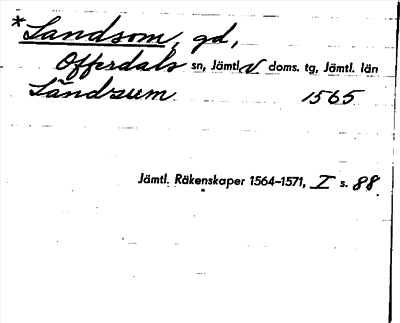 *Landsom, gd,
Offerdals sn, Jämtl. V doms. tg, Jämtl. län
Ländzum 1565
Jämtl. Räkenskaper 1564-1571, I s. 88.